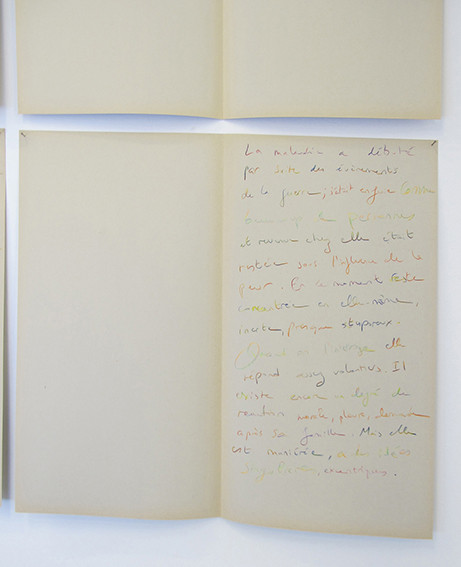 La maladie a débuté
par suite des évènements
de la guerre; s'était enfuie comme
beaucoup de personnes
et revenue chez elle était
restée sous l'influence de la
peur. En ce moment reste
concentrée en elle-même,
inerte, presque stupeur.
Quand on l'interroge elle
répond assez volontiers. Il
existe encore un degré de
réaction morale, pleure, demande
après sa famille. Mais elle
est maniérée, a des idées
singulières, excentriques.